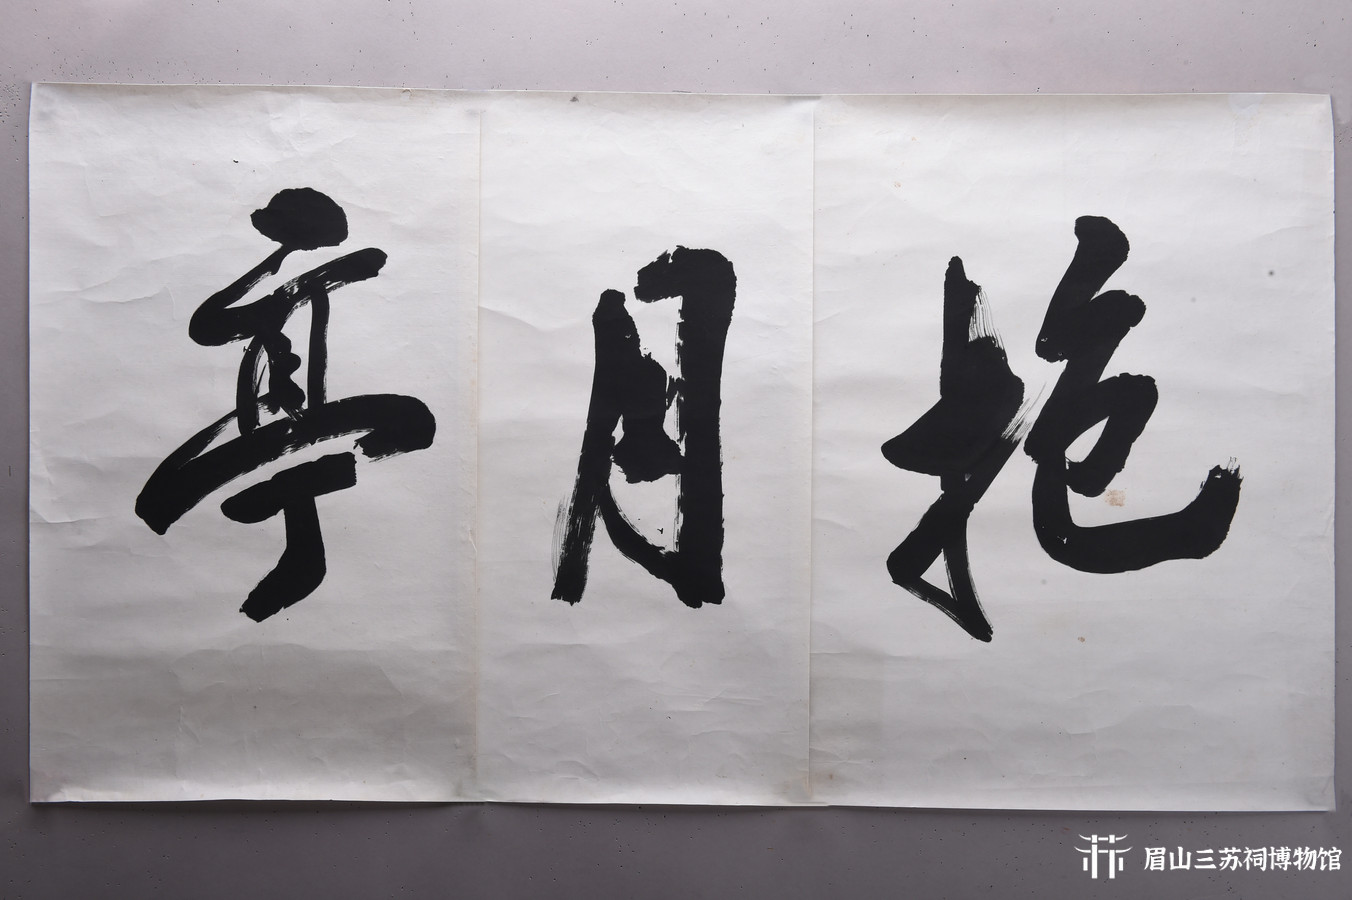 抱月亭
眉山三苏祠博物馆